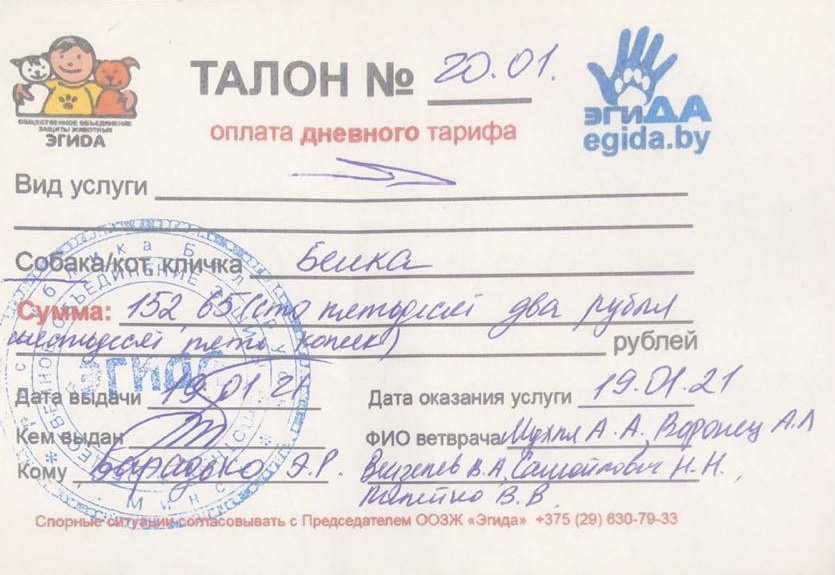 ОБЩЕСТВЕННОЕ ОБЪЕДИНЕНИЕ
ЗАЩИТЫ ЖИВОТНЫХ
ЭГИДА
ТАЛОН № 20.01.
оплата дневного тарифа
эгиДА
egida.by
Вид услуги
Собака/кот, кличка Белка
Сумма: 152 65 (сто пятьдесят два рубля
шестьдесят пять копеек) рублей
Дата выдачи 19 01 21
Дата оказания услуги 19.01.21
Кем выдан
ФИО ветврача А.А, Воронец А.Л
Кому Э.Р.
В.А, Самойлович Н.Н.,
В.В.
ЭГИДА
Минск
Спорные ситуации согласовывать с Председателем ООЗЖ «Эгида» +375 (29) 630-79-33